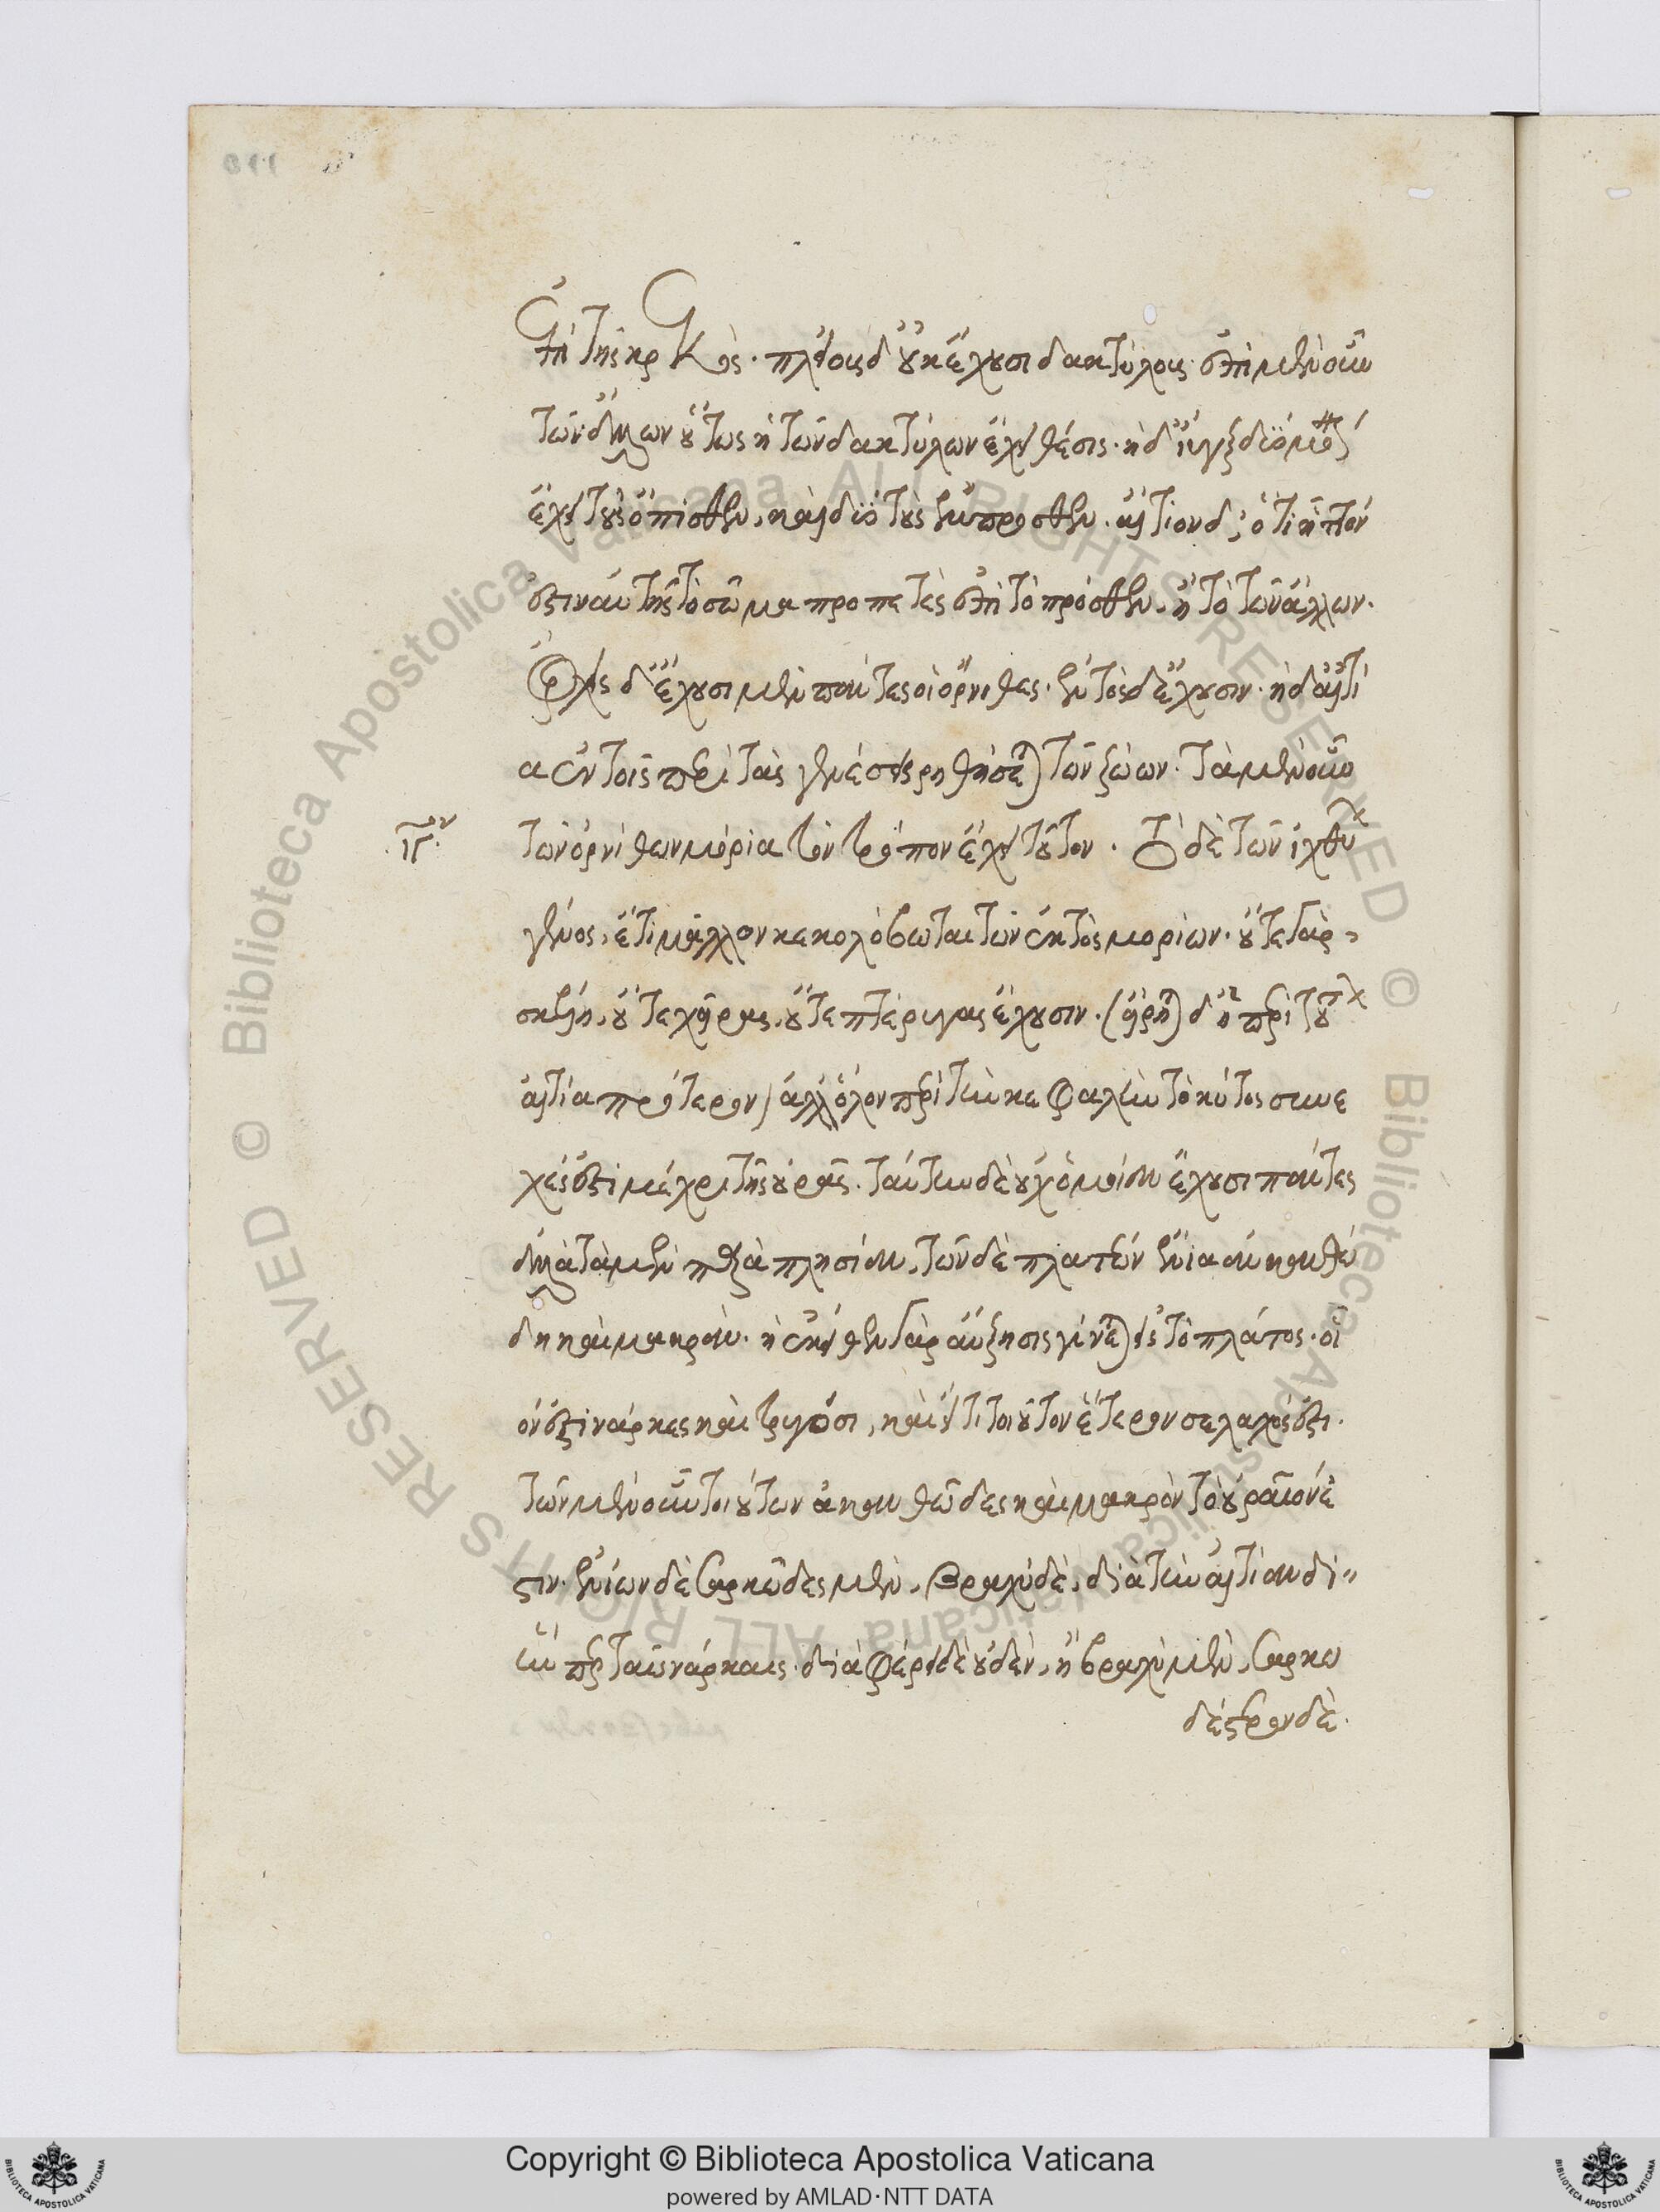 ἐπὶ τῆς κρεκός· πλείους δ' οὐκ ἔχουσι δακτύλους· ἐπὶ μὲν οὖν
τῶν ἄλλων οὕτως ἡ τῶν δακτύλων ἔχει θέσις· ἡ δ' ἴυγξ δύο μόνον
ἔχει τοὺς ὄπισθεν, καὶ δύο τοὺς ἔμπροσθεν· αἴτιον δ' ὅτι ἧττόν
ἐστιν αὐτῆς τὸ σῶμα προπετὲς ἐπὶ τὸ πρόσθεν, ἢ τὸ τῶν ἄλλων·
ὄρχεις δ' ἔχουσι μὲν πάντες οἱ ὄρνιθες· ἐντὸς δ' ἔχουσιν· ἡ δ' αἰτί
α ἐν τοῖς περὶ τὰς γενέσεις ῥηθήσεται τῶν ζώων· τὰ μὲν οὖν
τῶν ὀρνίθων μόρια τὸν τρόπον ἔχει τοῦτον· Τὸ δὲ τῶν ἰχθύων
.ιγ΄.ον
γένος, ἔτι μᾶλλον κεκολόβωται τῶν ἐκτὸς μορίων· οὔτε γὰρ
σκέλη, οὔτε χεῖρας, οὔτε πτέρυγας ἔχουσιν· (εἴρηται δ' ἡ περὶ τούτων
αἰτία πρότερον) ἀλλ' ὅλον περὶ τὴν κεφαλὴν τὸ κύτος συνε
χές ἐστι μέχρι τῆς οὐρᾶς· ταύτην δὲ οὐχ ὁμοίαν ἔχουσι πάντες
ἀλλὰ τὰ μὲν παραπλησίαν, τῶν δὲ πλατέων ἔνια ἀκανθώ
δη καὶ μακράν· ἡ ἐκεῖθεν γὰρ αὔξησις γίνεται εἰς τὸ πλάτος· οἷ
όν ἐστι νάρκες καὶ τρυγόσι, καὶ εἴ τι τοιοῦτον ἕτερον σέλαχός ἐστι·
τῶν μὲν οὖν τοιούτων ἀκανθῶδες καὶ μακρὸν τὸ οὐραῖόν ἐ
στιν· ἐνίων δὲ σαρκῶδες μὲν, βραχὺ δὲ, διὰ τὴν αἰτίαν δι'
ἣν περ ταῖς νάρκαις· διαφέρει δὲ οὐδὲν, ἢ βραχὺ μὲν, σαρκω
δέστερον δὲ·